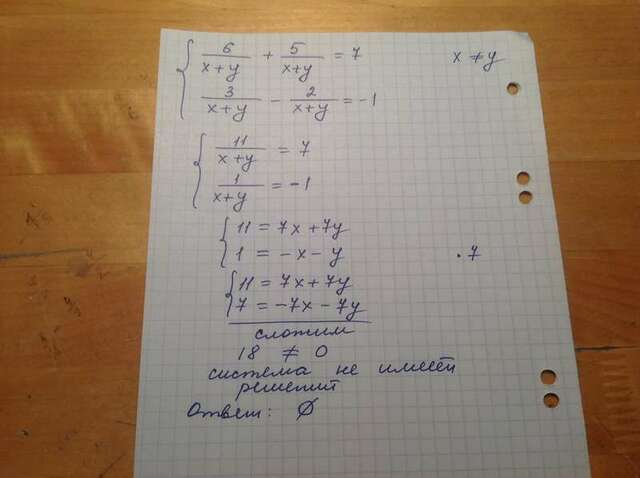 6/(x+y) + 5/(x+y) = 7 x ≠ y
3/(x+y) - 2/(x+y) = -1
11/(x+y) = 7
1/(x+y) = -1
11 = 7x + 7y
1 = -x - y ·7
11 = 7x + 7y
7 = -7x - 7y
сложим
18 ≠ 0
система не имеет
решений
Ответ: ∅